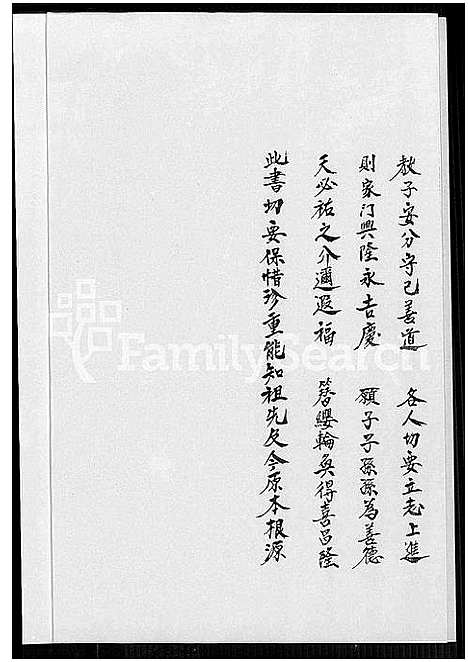 教子安分守己善道　各人切要立志上進
則家门興隆永吉慶　願子子孫孫為善德
天必祐之介邇遐福　簪纓輪奐得喜昌隆
此書切要保惜珍重能知祖先及今原本根源
FamilySearch